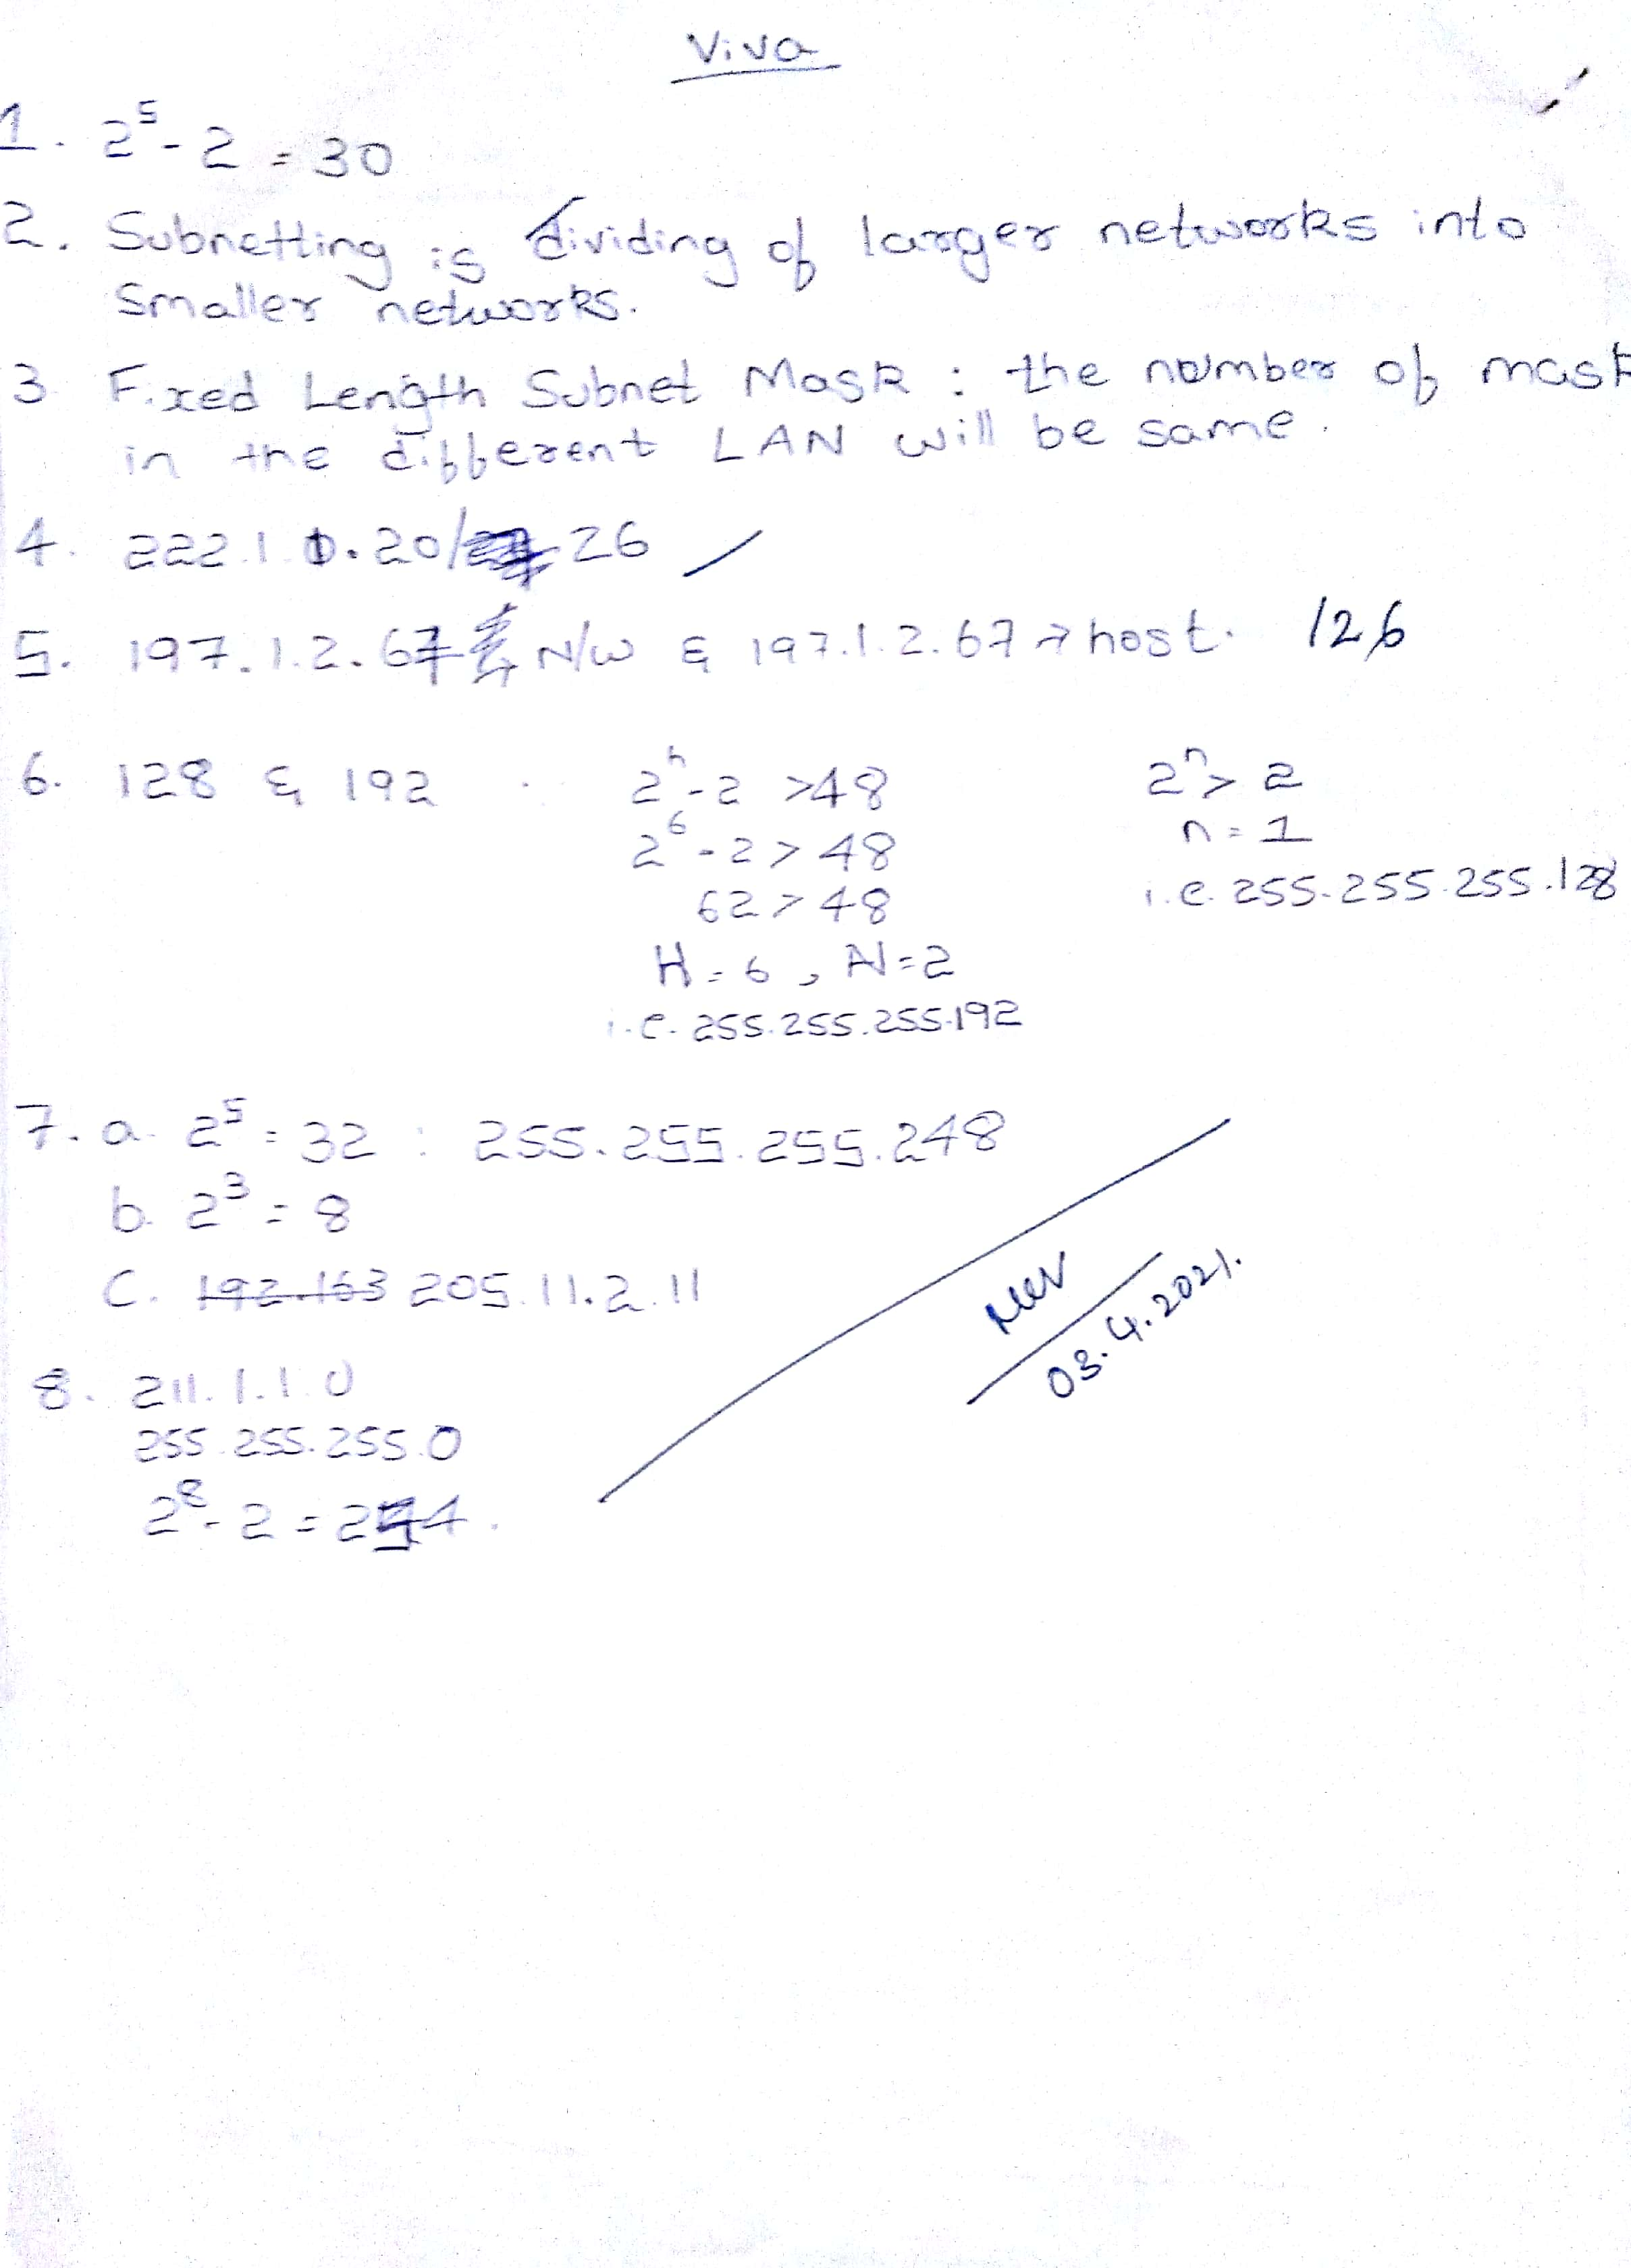 Viva
1. 2⁵ - 2 = 30
2. Subnetting is dividing of larger networks into
smaller networks.
3 Fixed Length Subnet Mask : the number of mask
in the different LAN will be same.
4. 222.1.0.20/ 26
5. 197.1.2.67 N/W & 197.1.2.67 → host. 126
6. 128 & 192
2ⁿ - 2 > 48
2⁶ - 2 > 48
62 > 48
H = 6, N = 2
i.e. 255.255.255.192
2ⁿ > 2
n = 1
i.e. 255.255.255.128
7. a. 2⁵ = 32 : 255.255.255.248
b. 2³ = 8
C. 192.163 205.11.2.11
03.4.2021.
8. 211.1.1.0
255.255.255.0
2⁸ - 2 = 254.